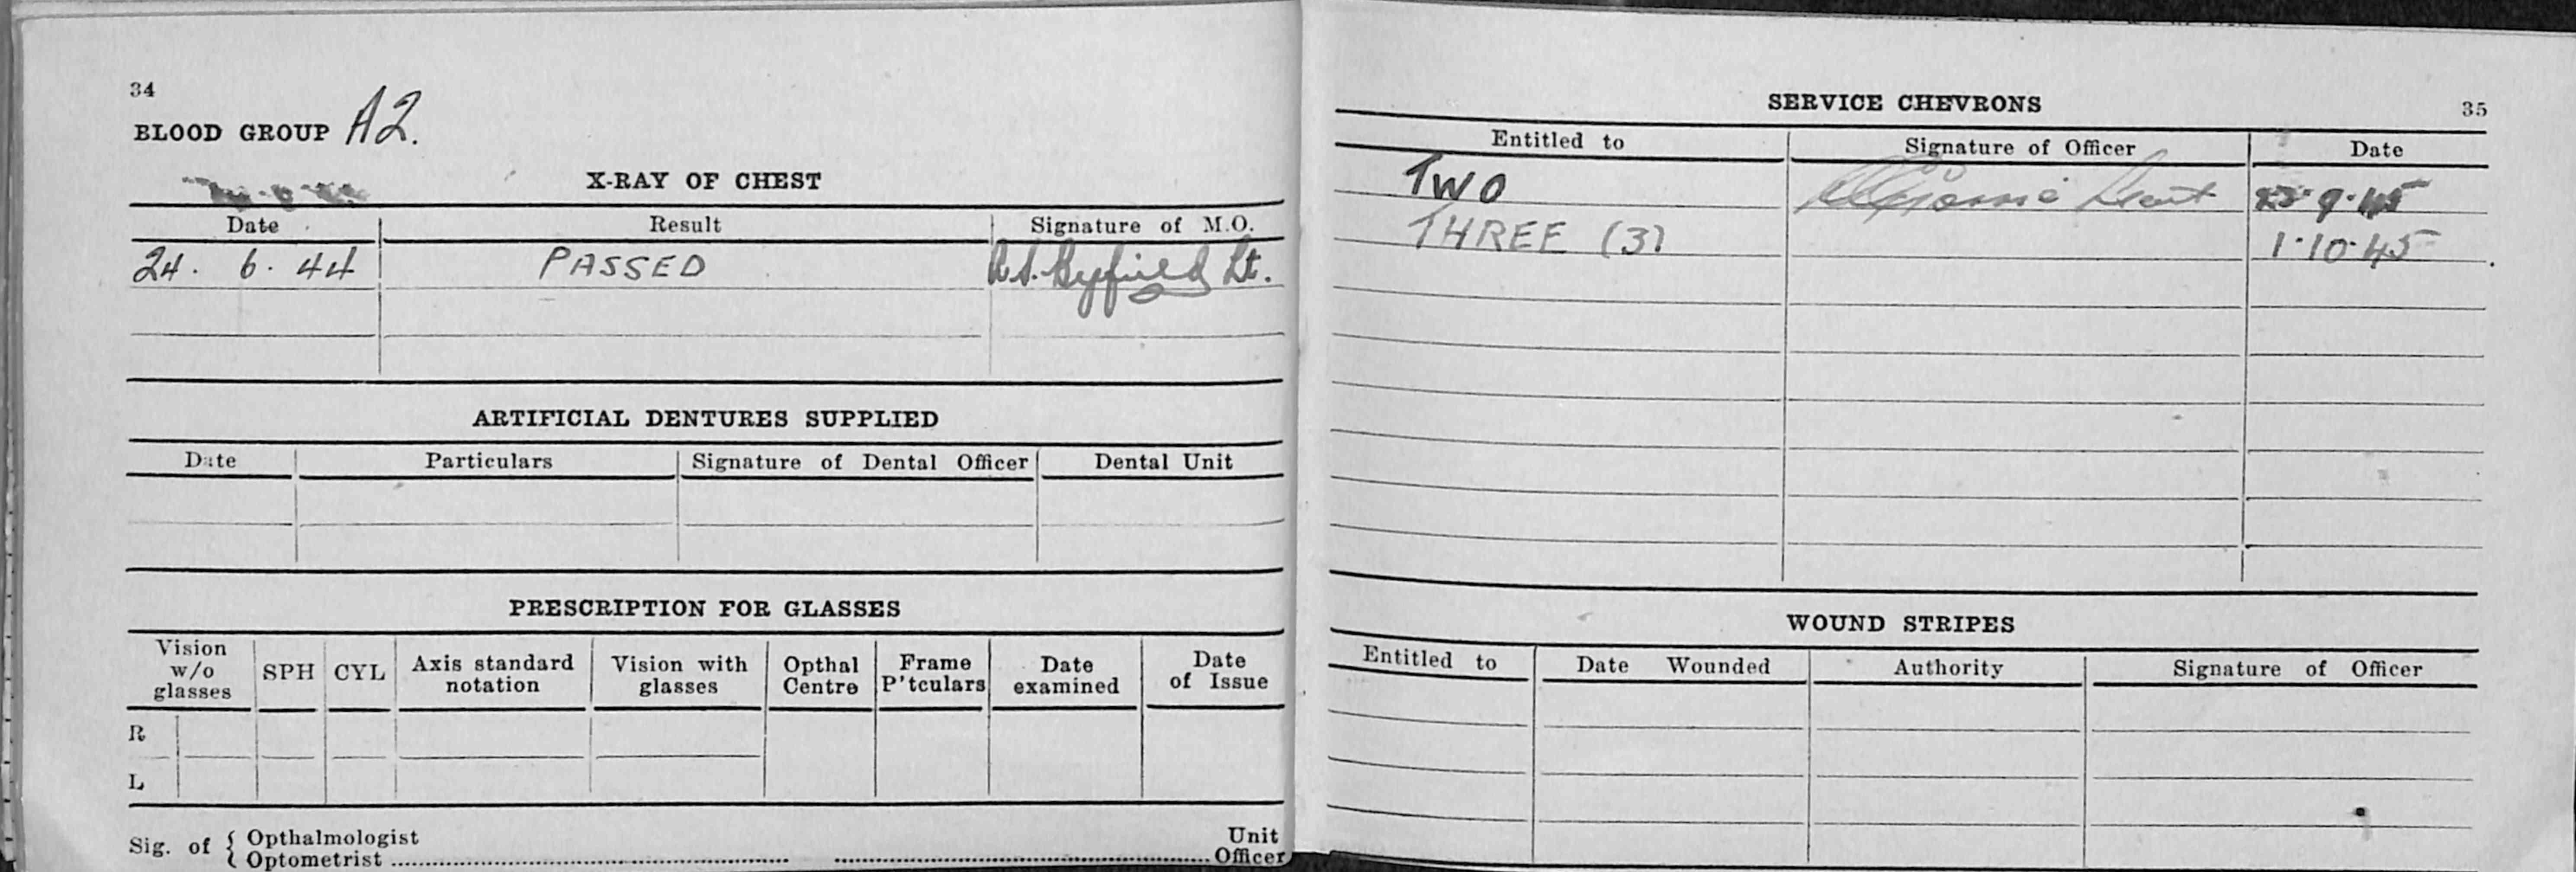 34
BLOOD GROUP A2.
X-RAY OF CHEST
Date Result Signature of M.O.
24. 6. 44 PASSED Lt.
ARTIFICIAL DENTURES SUPPLIED
Date Particulars Signature of Dental Officer Dental Unit
PRESCRIPTION FOR GLASSES
Vision w/o glasses SPH CYL Axis standard notation Vision with glasses Opthal Centre Frame P'tculars Date examined Date of Issue
R
L
Sig. of { Opthalmologist
Optometrist
Unit
Officer
35
SERVICE CHEVRONS
Entitled to Signature of Officer Date
TWO Lieut
THREE (3) 1.10.45
WOUND STRIPES
Entitled to Date Wounded Authority Signature of Officer